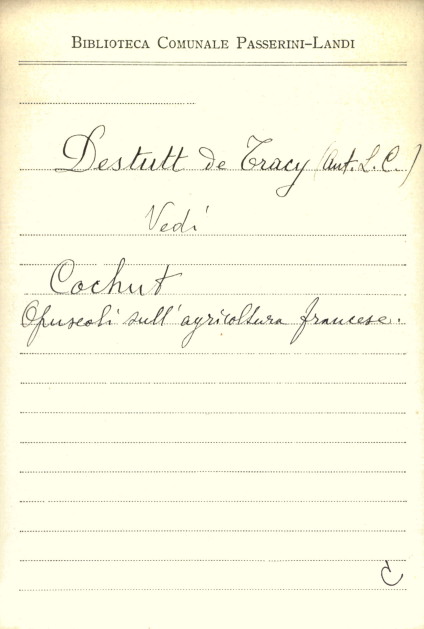 Biblioteca Comunale Passerini-Landi
Destutt de Tracy (Ant. L. C.)
Vedi
Cochut
Opuscoli sull'agricoltura francese.
C